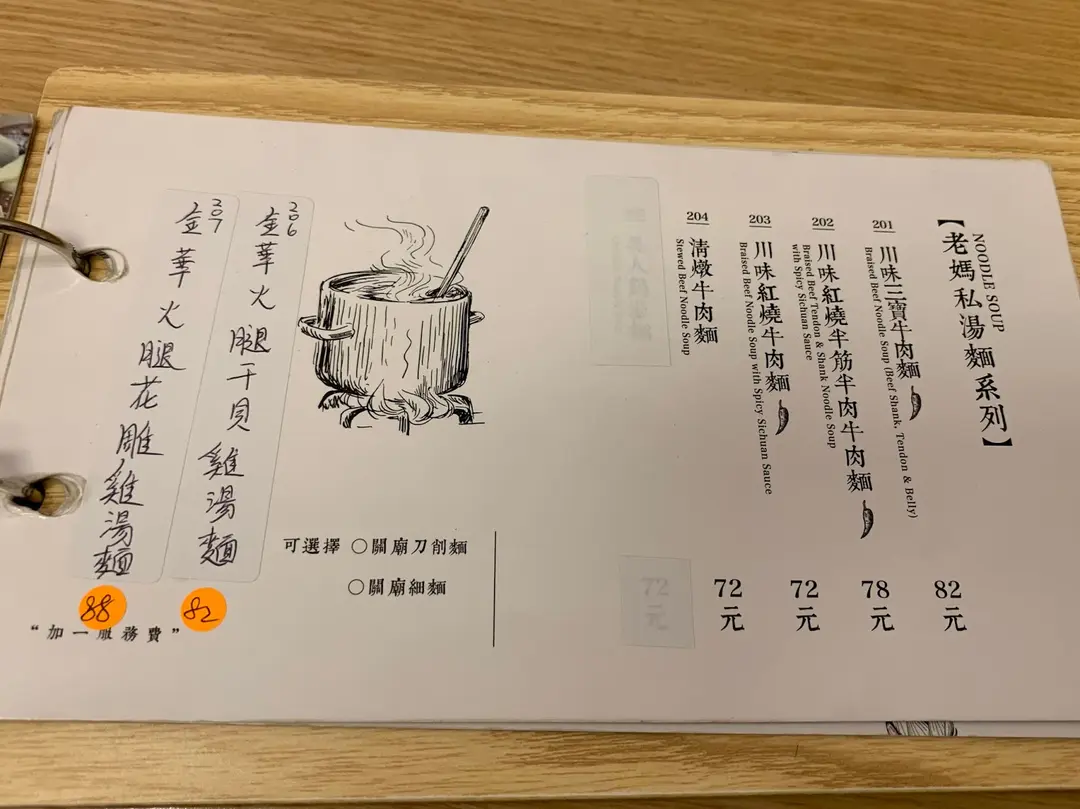 【老媽私湯麵系列】
NOODLE SOUP
201
川味三寶牛肉麵
Braised Beef Noodle Soup (Beef Shank, Tendon & Belly)
82元
202
川味紅燒半筋半肉牛肉麵
Braised Beef Tendon & Shank Noodle Soup
with Spicy Sichuan Sauce
78元
203
川味紅燒牛肉麵
Braised Beef Noodle Soup with Spicy Sichuan Sauce
72元
204
清燉牛肉麵
Stewed Beef Noodle Soup
72元
72元
可選擇 ○關廟刀削麵
○關廟細麵
206
金華火腿干貝雞湯麵
82
207
金華火腿花雕雞湯麵
88
“加一服務費”